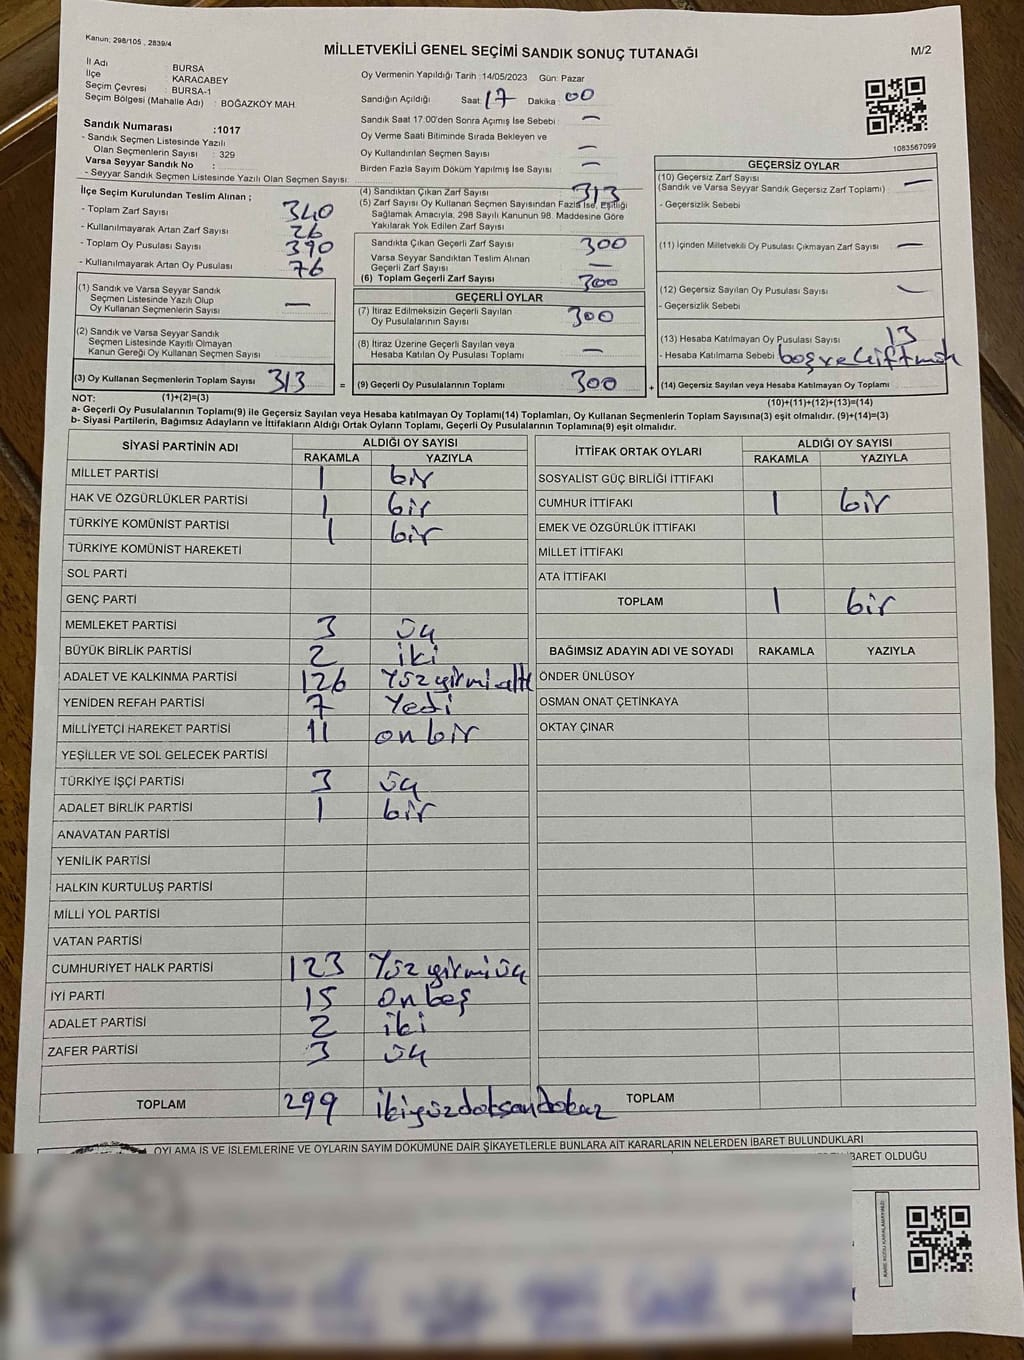 Kanun; 298/105 , 2839/4
MİLLETVEKİLİ GENEL SEÇİMİ SANDIK SONUÇ TUTANAĞI
M/2
İl Adı BURSA
İlçe KARACABEY
Seçim Çevresi : BURSA-1
Seçim Bölgesi (Mahalle Adı) : BOĞAZKÖY MAH.
Sandık Numarası :1017
- Sandık Seçmen Listesinde Yazılı
Olan Seçmenlerin Sayısı : 329
Varsa Seyyar Sandık No :
- Seyyar Sandık Seçmen Listesinde Yazılı Olan Seçmen Sayısı:
Oy Vermenin Yapıldığı Tarih :14/05/2023 Gün: Pazar
Sandığın Açıldığı Saat: 17 Dakika : 00
Sandık Saat 17.00'den Sonra Açımış İse Sebebi : —
Oy Verme Saati Bitiminde Sırada Bekleyen ve
Oy Kullandırılan Seçmen Sayısı : —
Birden Fazla Sayım Döküm Yapılmış İse Sayısı : —
1083567099
İlçe Seçim Kurulundan Teslim Alınan ;
- Toplam Zarf Sayısı : 340
- Kullanılmayarak Artan Zarf Sayısı : 26
- Toplam Oy Pusulası Sayısı : 390
- Kullanılmayarak Artan Oy Pusulası : 76
(1) Sandık ve Varsa Seyyar Sandık
Seçmen Listesinde Yazılı Olup
Oy Kullanan Seçmenlerin Sayısı : —
(2) Sandık ve Varsa Seyyar Sandık
Seçmen Listesinde Kayıtlı Olmayan
Kanun Gereği Oy Kullanan Seçmen Sayısı :
(3) Oy Kullanan Seçmenlerin Toplam Sayısı : 313
(1)+(2)=(3)
(4) Sandıktan Çıkan Zarf Sayısı : 313
(5) Zarf Sayısı Oy Kullanan Seçmen Sayısından Fazla İse, Eşitliği
Sağlamak Amacıyla, 298 Sayılı Kanunun 98. Maddesine Göre
Yakılarak Yok Edilen Zarf Sayısı :
Sandıkta Çıkan Geçerli Zarf Sayısı : 300
Varsa Seyyar Sandıktan Teslim Alınan
Geçerli Zarf Sayısı : —
(6) Toplam Geçerli Zarf Sayısı : 300
GEÇERLİ OYLAR
(7) İtiraz Edilmeksizin Geçerli Sayılan
Oy Pusulalarının Sayısı : 300
(8) İtiraz Üzerine Geçerli Sayılan veya
Hesaba Katılan Oy Pusulası Toplamı : —
= (9) Geçerli Oy Pusulalarının Toplamı : 300 +
GEÇERSİZ OYLAR
(10) Geçersiz Zarf Sayısı
(Sandık ve Varsa Seyyar Sandık Geçersiz Zarf Toplamı) : —
- Geçersizlik Sebebi
(11) İçinden Milletvekili Oy Pusulası Çıkmayan Zarf Sayısı : —
(12) Geçersiz Sayılan Oy Pusulası Sayısı : —
- Geçersizlik Sebebi
(13) Hesaba Katılmayan Oy Pusulası Sayısı : 13
- Hesaba Katılmama Sebebi : boş ve
(14) Geçersiz Sayılan veya Hesaba Katılmayan Oy Toplamı
(10)+(11)+(12)+(13)=(14)
NOT:
a- Geçerli Oy Pusulalarının Toplamı(9) ile Geçersiz Sayılan veya Hesaba katılmayan Oy Toplamı(14) Toplamları, Oy Kullanan Seçmenlerin Toplam Sayısına(3) eşit olmalıdır. (9)+(14)=(3)
b- Siyasi Partilerin, Bağımsız Adayların ve İttifakların Aldığı Ortak Oyların Toplamı, Geçerli Oy Pusulalarının Toplamına(9) eşit olmalıdır.
SİYASİ PARTİNİN ADI ALDIĞI OY SAYISI
RAKAMLA YAZIYLA
MİLLET PARTİSİ 1 bir
HAK VE ÖZGÜRLÜKLER PARTİSİ 1 bir
TÜRKİYE KOMÜNİST PARTİSİ 1 bir
TÜRKİYE KOMÜNİST HAREKETİ
SOL PARTİ
GENÇ PARTİ
MEMLEKET PARTİSİ 3 üç
BÜYÜK BİRLİK PARTİSİ 2 iki
ADALET VE KALKINMA PARTİSİ 126 Yüzyirmialtı
YENİDEN REFAH PARTİSİ 7 Yedi
MİLLİYETÇİ HAREKET PARTİSİ 11 on bir
YEŞİLLER VE SOL GELECEK PARTİSİ
TÜRKİYE İŞÇİ PARTİSİ 3 üç
ADALET BİRLİK PARTİSİ 1 bir
ANAVATAN PARTİSİ
YENİLİK PARTİSİ
HALKIN KURTULUŞ PARTİSİ
MİLLİ YOL PARTİSİ
VATAN PARTİSİ
CUMHURİYET HALK PARTİSİ 123 Yüz yirmi üç
İYİ PARTİ 15 on beş
ADALET PARTİSİ 2 iki
ZAFER PARTİSİ 3 üç
TOPLAM 299 ikiyüzdoksandokuz
İTTİFAK ORTAK OYLARI ALDIĞI OY SAYISI
RAKAMLA YAZIYLA
SOSYALİST GÜÇ BİRLİĞİ İTTİFAKI
CUMHUR İTTİFAKI 1 bir
EMEK VE ÖZGÜRLÜK İTTİFAKI
MİLLET İTTİFAKI
ATA İTTİFAKI
TOPLAM 1 bir
BAĞIMSIZ ADAYIN ADI VE SOYADI RAKAMLA YAZIYLA
ÖNDER ÜNLÜSOY
OSMAN ONAT ÇETİNKAYA
OKTAY ÇINAR
TOPLAM
OYLAMA İŞ VE İŞLEMLERİNE VE OYLARIN SAYIM DÖKÜMÜNE DAİR ŞİKAYETLERLE BUNLARA AİT KARARLARIN NELERDEN İBARET BULUNDUKLARI
İBARET OLDUĞU